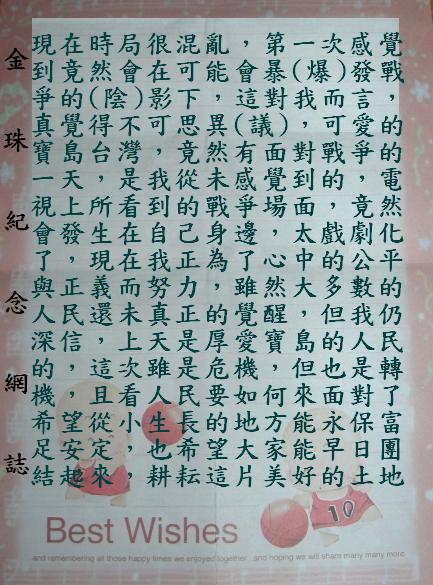 金珠紀念網誌
現在時局很混亂，第一次感覺
到竟然會在可能，會暴(爆)發戰
爭的(陰)影下，這對我而言，
真覺得不可思異(議)，可愛的
寶島台灣，竟然有面對戰爭的
一天，是我從未感覺到的，電
視上所看到的戰爭場面，竟然
會發生在自己身邊，太戲劇化
了，現在我正為了心中的公平
與正義而努力，雖然大多數的
人民還未真正的覺醒，但我仍
深信，上天是厚愛寶島的人民
的，這次雖是危機，但也是轉
機，且看人民要如何來面對了
希望從小生長的地方能永保富
足安定，也希望大家能早日團
結起來，耕耘這片美好的土地
10
Best Wishes
and remembering all those happy times we enjoyed together...and hoping we will share many many more